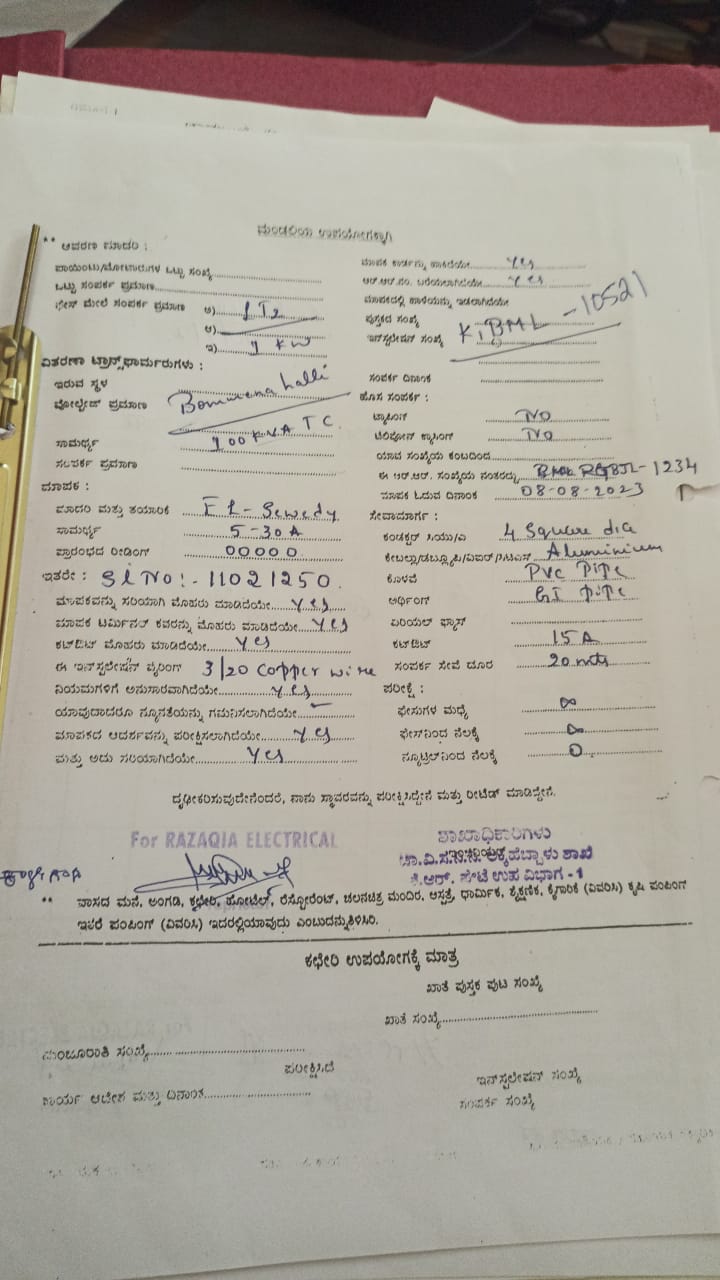 ಮಂಡಳಿಯ ಉಪಯೋಗಕ್ಕಾಗಿ
** ಆವರಣ ಮಾದರಿ :
ಪಾಯಿಂಟು/ಮೋಟಾರುಗಳ ಒಟ್ಟು ಸಂಖ್ಯೆ
ಒಟ್ಟು ಸಂಪರ್ಕ ಪ್ರಮಾಣ
ಫೇಸ್ ಮೇಲೆ ಸಂಪರ್ಕ ಪ್ರಮಾಣ ಅ)
ಆ)
ಇ) 1 KW
ವಿತರಣಾ ಟ್ರಾನ್ಸ್‌ಫಾರ್ಮರುಗಳು :
ಇರುವ ಸ್ಥಳ Bommenahalli
ವೋಲ್ಟೇಜ್ ಪ್ರಮಾಣ
ಸಾಮರ್ಥ್ಯ 100 KVA TC.
ಸಂಪರ್ಕ ಪ್ರಮಾಣ
ಮಾಪಕ :
ಮಾದರಿ ಮತ್ತು ತಯಾರಿಕೆ EL-Sewedy
ಸಾಮರ್ಥ್ಯ 5-30A
ಪ್ರಾರಂಭದ ರೀಡಿಂಗ್ 00000
ಇತರೇ : Sl No:- 11021250.
ಮಾಪಕವನ್ನು ಸರಿಯಾಗಿ ಮೊಹರು ಮಾಡಿದೆಯೇ yes
ಮಾಪಕ ಟರ್ಮಿನಲ್ ಕವರನ್ನು ಮೊಹರು ಮಾಡಿದೆಯೇ yes
ಕಟ್‌ಔಟ್ ಮೊಹರು ಮಾಡಿದೆಯೇ yes
ಈ ಇನ್‌ಸ್ಟಲೇಷನ್ ವೈರಿಂಗ್ 3/20 copper wire
ನಿಯಮಗಳಿಗೆ ಅನುಸಾರವಾಗಿದೆಯೇ yes
ಯಾವುದಾದರೂ ನ್ಯೂನತೆಯನ್ನು ಗಮನಿಸಲಾಗಿದೆಯೇ -
ಮಾಪಕದ ಆದರ್ಶವನ್ನು ಪರೀಕ್ಷಿಸಲಾಗಿದೆಯೇ yes
ಮತ್ತು ಅದು ಸರಿಯಾಗಿದೆಯೇ yes
yes
ಆರ್.ಆರ್.ನಂ. ಬರೆಯಲಾಗಿದೆಯೇ yes
ಪುಸ್ತಕದ ಸಂಖ್ಯೆ
ಇನ್‌ಸ್ಟಲೇಷನ್ ಸಂಖ್ಯೆ KiBML-10521
ಸಂಪರ್ಕ ದಿನಾಂಕ
ಹೊಸ ಸಂಪರ್ಕ :
ಟ್ಯಾಪಿಂಗ್ NO
NO
ಯಾವ ಸಂಖ್ಯೆಯ ಕಂಬದಿಂದ
ಈ ಆರ್.ಆರ್. ಸಂಖ್ಯೆಯ ನಂತರದ್ದು -1234
ಮಾಪಕ ಓದುವ ದಿನಾಂಕ 08-08-2023
ಸೇವಾಮಾರ್ಗ :
ಕಂಡಕ್ಟರ್ ಸಿಯು/ಎ 4 Square dia
Aluminium
ಕೊಳವೆ PVC Pipe
ಅರ್ಥಿಂಗ್ GI pipe
ಏರಿಯಲ್ ಫ್ಯೂಸ್
ಕಟ್‌ಔಟ್ 15A
ಸಂಪರ್ಕ ಸೇವೆ ದೂರ 20 mts
ಪರೀಕ್ಷೆ :
ಫೇಸುಗಳ ಮಧ್ಯೆ ∞
ಫೇಸ್‌ನಿಂದ ನೆಲಕ್ಕೆ ∞
ನ್ಯೂಟ್ರಲ್‌ನಿಂದ ನೆಲಕ್ಕೆ 0
ದೃಢೀಕರಿಸುವುದೇನೆಂದರೆ, ನಾನು ಸ್ಥಾವರವನ್ನು ಪರೀಕ್ಷಿಸಿದ್ದೇನೆ ಮತ್ತು ರೀಟೆಡ್ ಮಾಡಿದ್ದೇನೆ.
For RAZAQIA ELECTRICAL
ಶಾಖಾಧಿಕಾರಿಗಳು
ಚಾ.ವಿ.ಸ.ನಿ.ನಿ. ಅಕ್ಕಿಹೆಬ್ಬಾಳು ಶಾಖೆ
ಕೆ.ಆರ್. ಪೇಟೆ ಉಪ ವಿಭಾಗ -1
** ವಾಸದ ಮನೆ, ಅಂಗಡಿ, ಕಛೇರಿ, ಹೋಟೆಲ್, ರೆಸ್ಟೋರೆಂಟ್, ಚಲನಚಿತ್ರ ಮಂದಿರ, ಆಸ್ಪತ್ರೆ, ಧಾರ್ಮಿಕ, ಶೈಕ್ಷಣಿಕ, ಕೈಗಾರಿಕೆ (ವಿವರಿಸಿ) ಕೃಷಿ ಪಂಪಿಂಗ್
ಇತರೆ ಪಂಪಿಂಗ್ (ವಿವರಿಸಿ) ಇದರಲ್ಲಿಯಾವುದು ಎಂಬುದನ್ನುತಿಳಿಸಿರಿ.
ಕಛೇರಿ ಉಪಯೋಗಕ್ಕೆ ಮಾತ್ರ
ಖಾತೆ ಪುಸ್ತಕ ಪುಟ ಸಂಖ್ಯೆ
ಖಾತೆ ಸಂಖ್ಯೆ
ಮಂಜೂರಾತಿ ಸಂಖ್ಯೆ
ಪರೀಕ್ಷಿಸಿದೆ
ಇನ್‌ಸ್ಟಲೇಷನ್ ಸಂಖ್ಯೆ
ಕಾರ್ಯ ಆದೇಶ ಮತ್ತು ದಿನಾಂಕ
ಸಂಪರ್ಕ ಸಂಖ್ಯೆ